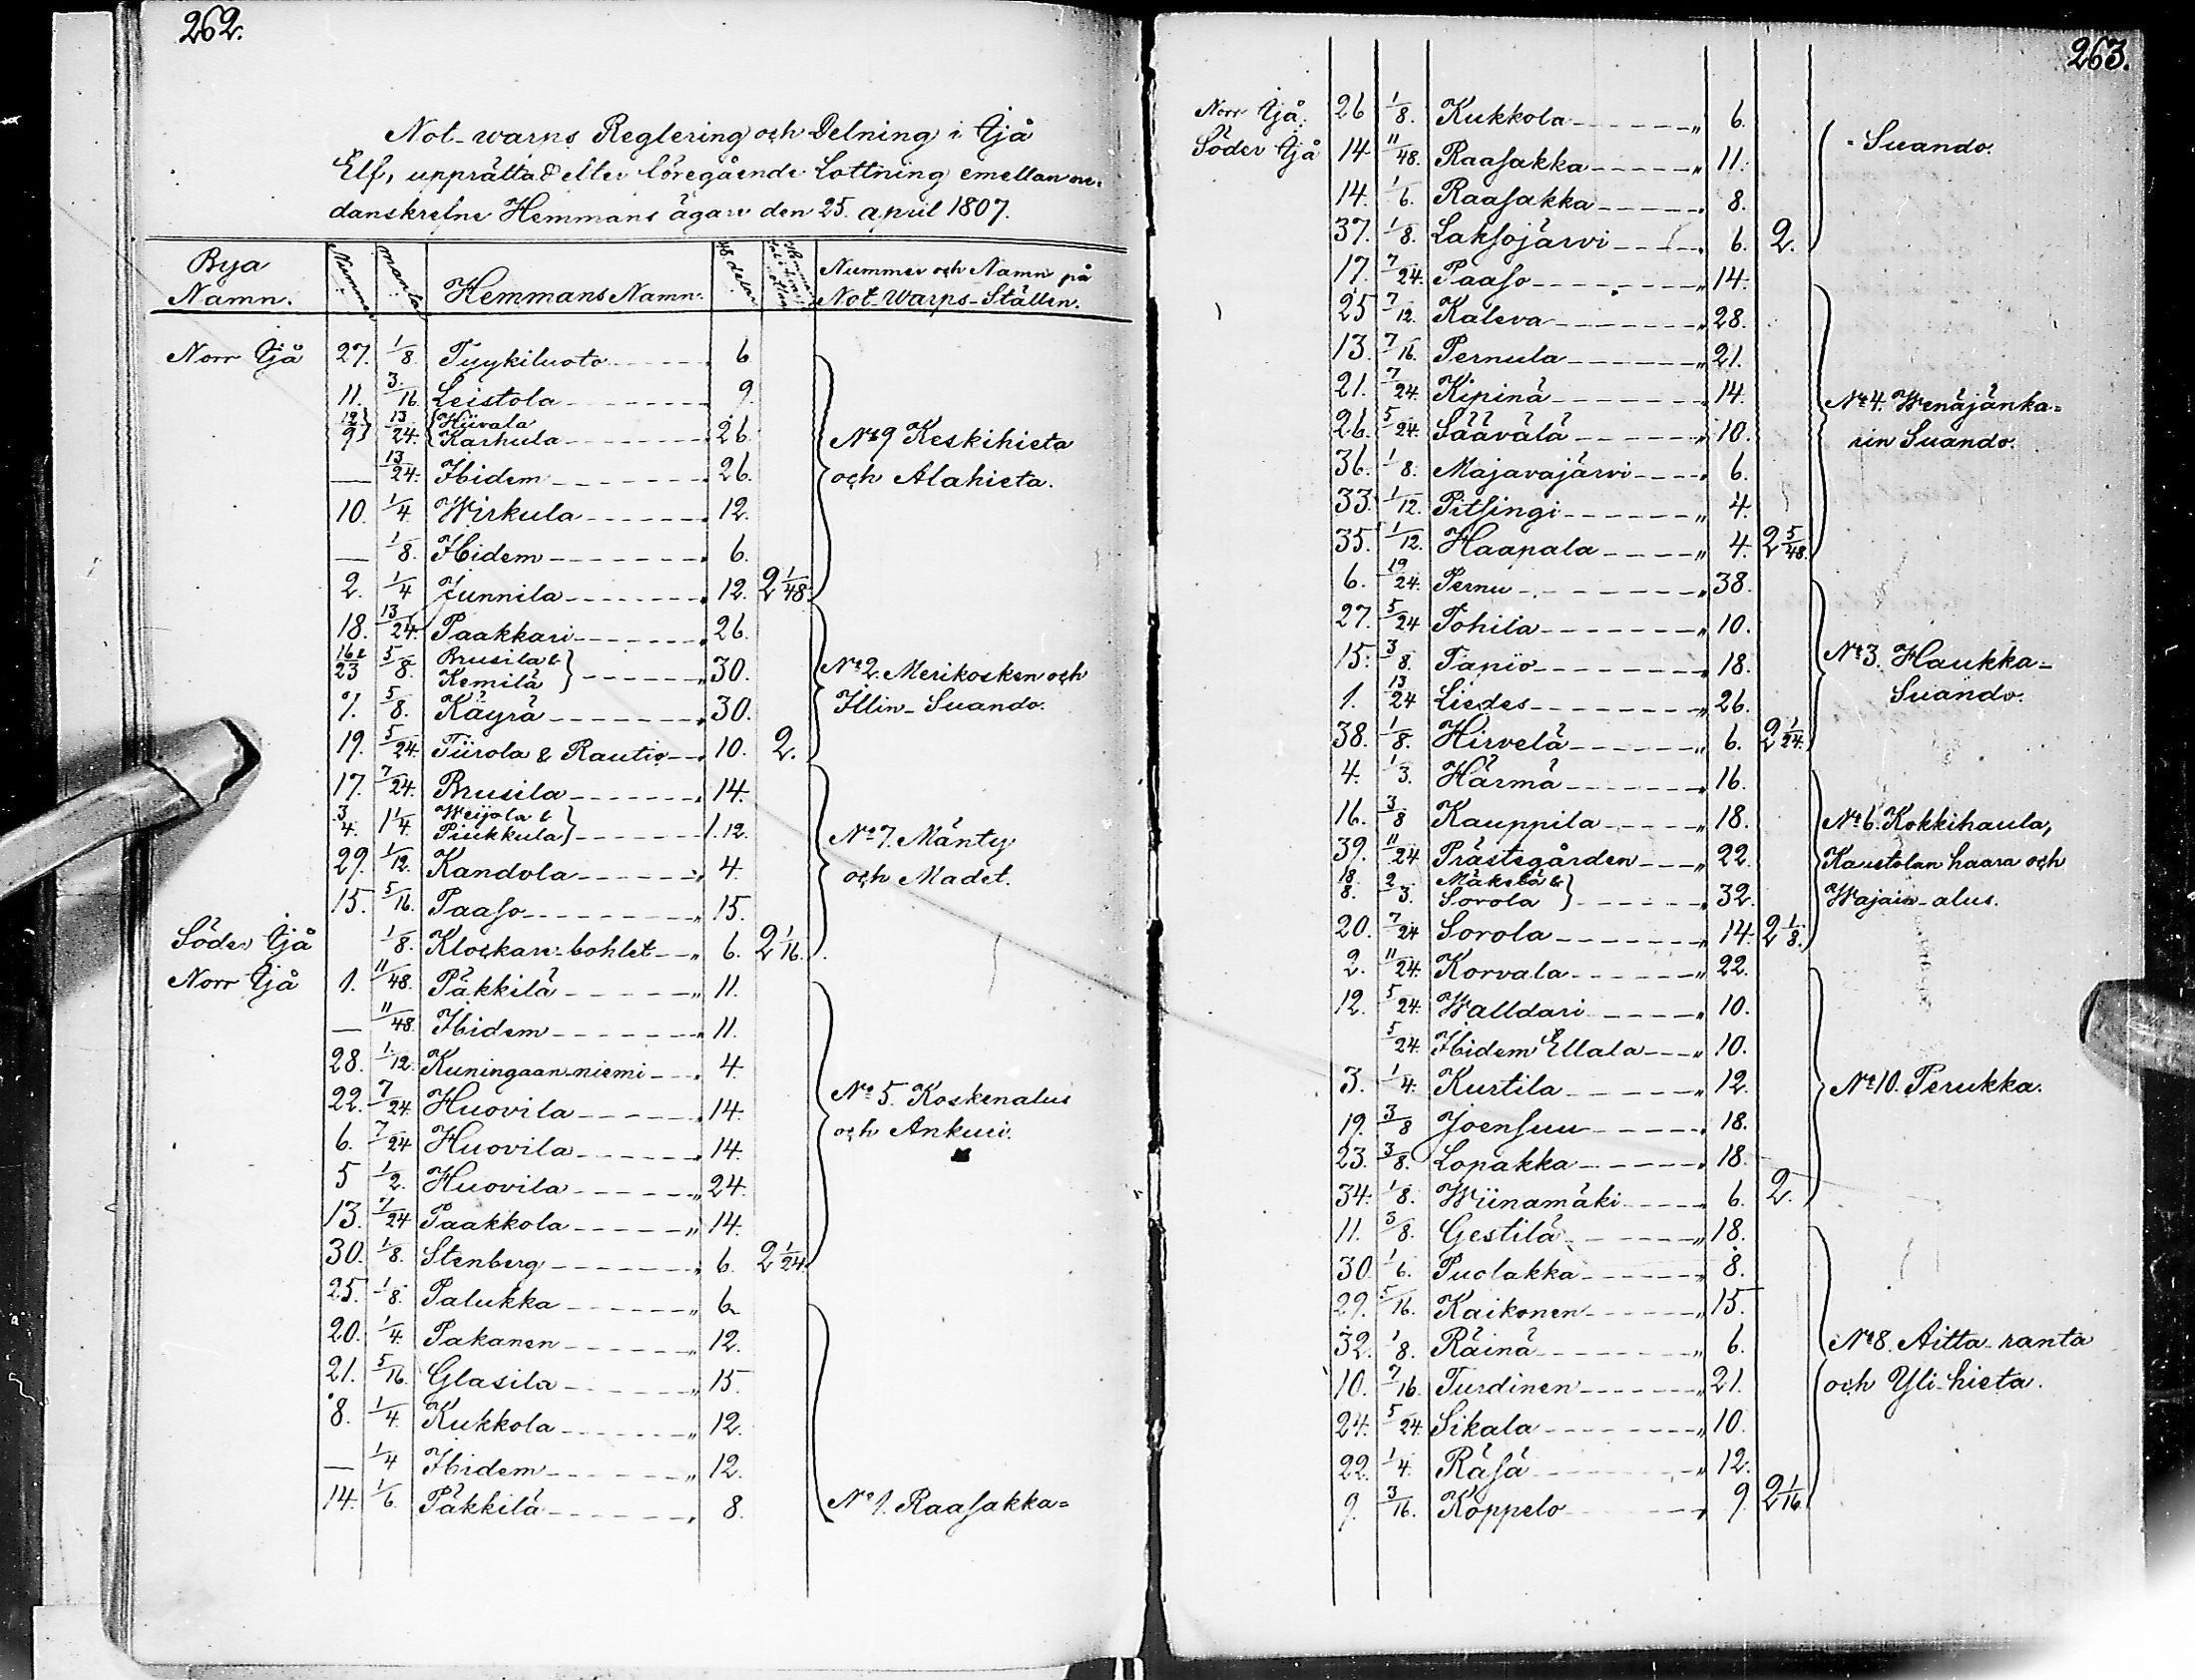 262.
Not-warps Reglering och Delning i Ijå
Elf, upprättad efter föregående Lottning emellan ne-
danskrefne Hemmans ägare den 25. april 1807.
Bya Namn. Nummer mantal Hemmans Namn. 48 delar Nummer och Namn på
Not-Warps-Ställen.
Norr Ijå 27. 1/8. Tyykiluoto 6
11. 3/16 Leistola 9
12 } 13 { Hiivala
9 } 24. { Karhula 26 No 9 Keskihieta
— 13/24. Ibidem 26. och Alahieta.
10. 1/4. Wirkula 12.
— 1/8. Ibidem 6.
2. 1/4 Junnila 12. 2 1/48.
18. 13/24. Paakkari 26.
16 & 5 Brusila & }
23 8. Kemilä } 30. No 2. Merikosken och
7. 5/8. Käyrä 30. Illin-Suando.
19. 5/24. Tiirola & Rautio 10. 2.
17. 7/24. Brusila 14.
3 1 1/4. Weijola & }
4. Piukkula } 1.12. No 7. Mänty
29. 1/12. Kandola 4. och Madet.
15. 5/16. Paaso 15.
Söder Ijå 1/8. Klockare-bohlet 6. 2 1/16.
Norr Ijå 1. 11/48. Päkkilä 11.
— 11/48. Ibidem 11.
28. 1/12. Kuningaan-niemi 4.
22. 7/24. Huovila 14. No 5. Koskenalus
6. 7/24 Huovila 14. och Ankuri.
5 1/2. Huovila 24.
13. 7/24 Paakkola 14.
30. 1/8. Stenberg 6. 2 1/24.
25. 1/8. Palukka 6
20. 1/4. Pakanen 12.
21. 5/16. Glasila 15.
8. 1/4. Kukkola 12.
— 1/4 Ibidem 12.
14. 1/6. Päkkilä 8. No 1. Raasakka=
263.
Norr Ijå. 26 1/8. Kukkola 6.
Söder Ijå 14 11/48. Raasakka 11. -Suando.
14. 1/6. Raasakka 8.
37. 1/8. Laksojärvi 6. 2.
17. 7/24. Paaso 14.
25 7/12. Kaleva 28.
13. 7/16. Pernula 21.
21. 7/24. Kipinä 14. No 4. Wenäjänka=
26. 5/24. Säävälä 10. rin Suando.
36. 1/8. Majavajärvi 6.
33. 1/12. Pitsingi 4.
35. 1/12. Haapala 4. 2 5/48.
6. 19/24. Pernu 38.
27. 5/24 Tohila 10.
15. 3/8. Tapio 18. No 3. Haukka=
1. 13/24 Liedes 26. Suando.
38. 1/8. Hirvelä 6. 2 1/24.
4. 1/3. Härmä 16.
16. 3/8 Kauppila 18. No 6. Kokkihaula,
39. 11/24 Prästegården 22. Kaustolan haara och
18. 2 Mäkelä & }
8. 3. Sorola } 32. Wajain-alus.
20. 7/24 Sorola 14. 2 1/8.
2. 11/24. Korvala 22.
12. 5/24. Walldari 10.
5/24. Ibidem Ellala 10.
3. 1/4. Kurtila 12. No 10. Perukka.
19. 3/8 Joensuu 18.
23. 3/8. Lopakka 18.
34. 1/8. Wiinamäki 6. 2.
11. 3/8. Gestilä 18.
30. 1/6. Puolakka 8.
29. 5/16. Kaikonen 15.
32. 1/8. Räinä 6. No 8. Aitta-ranta
10. 7/16. Turdinen 21. och Yli-hieta.
24. 5/24. Sikala 10.
22. 1/4. Räsä 12.
9. 3/16. Koppelo 9. 2 1/16